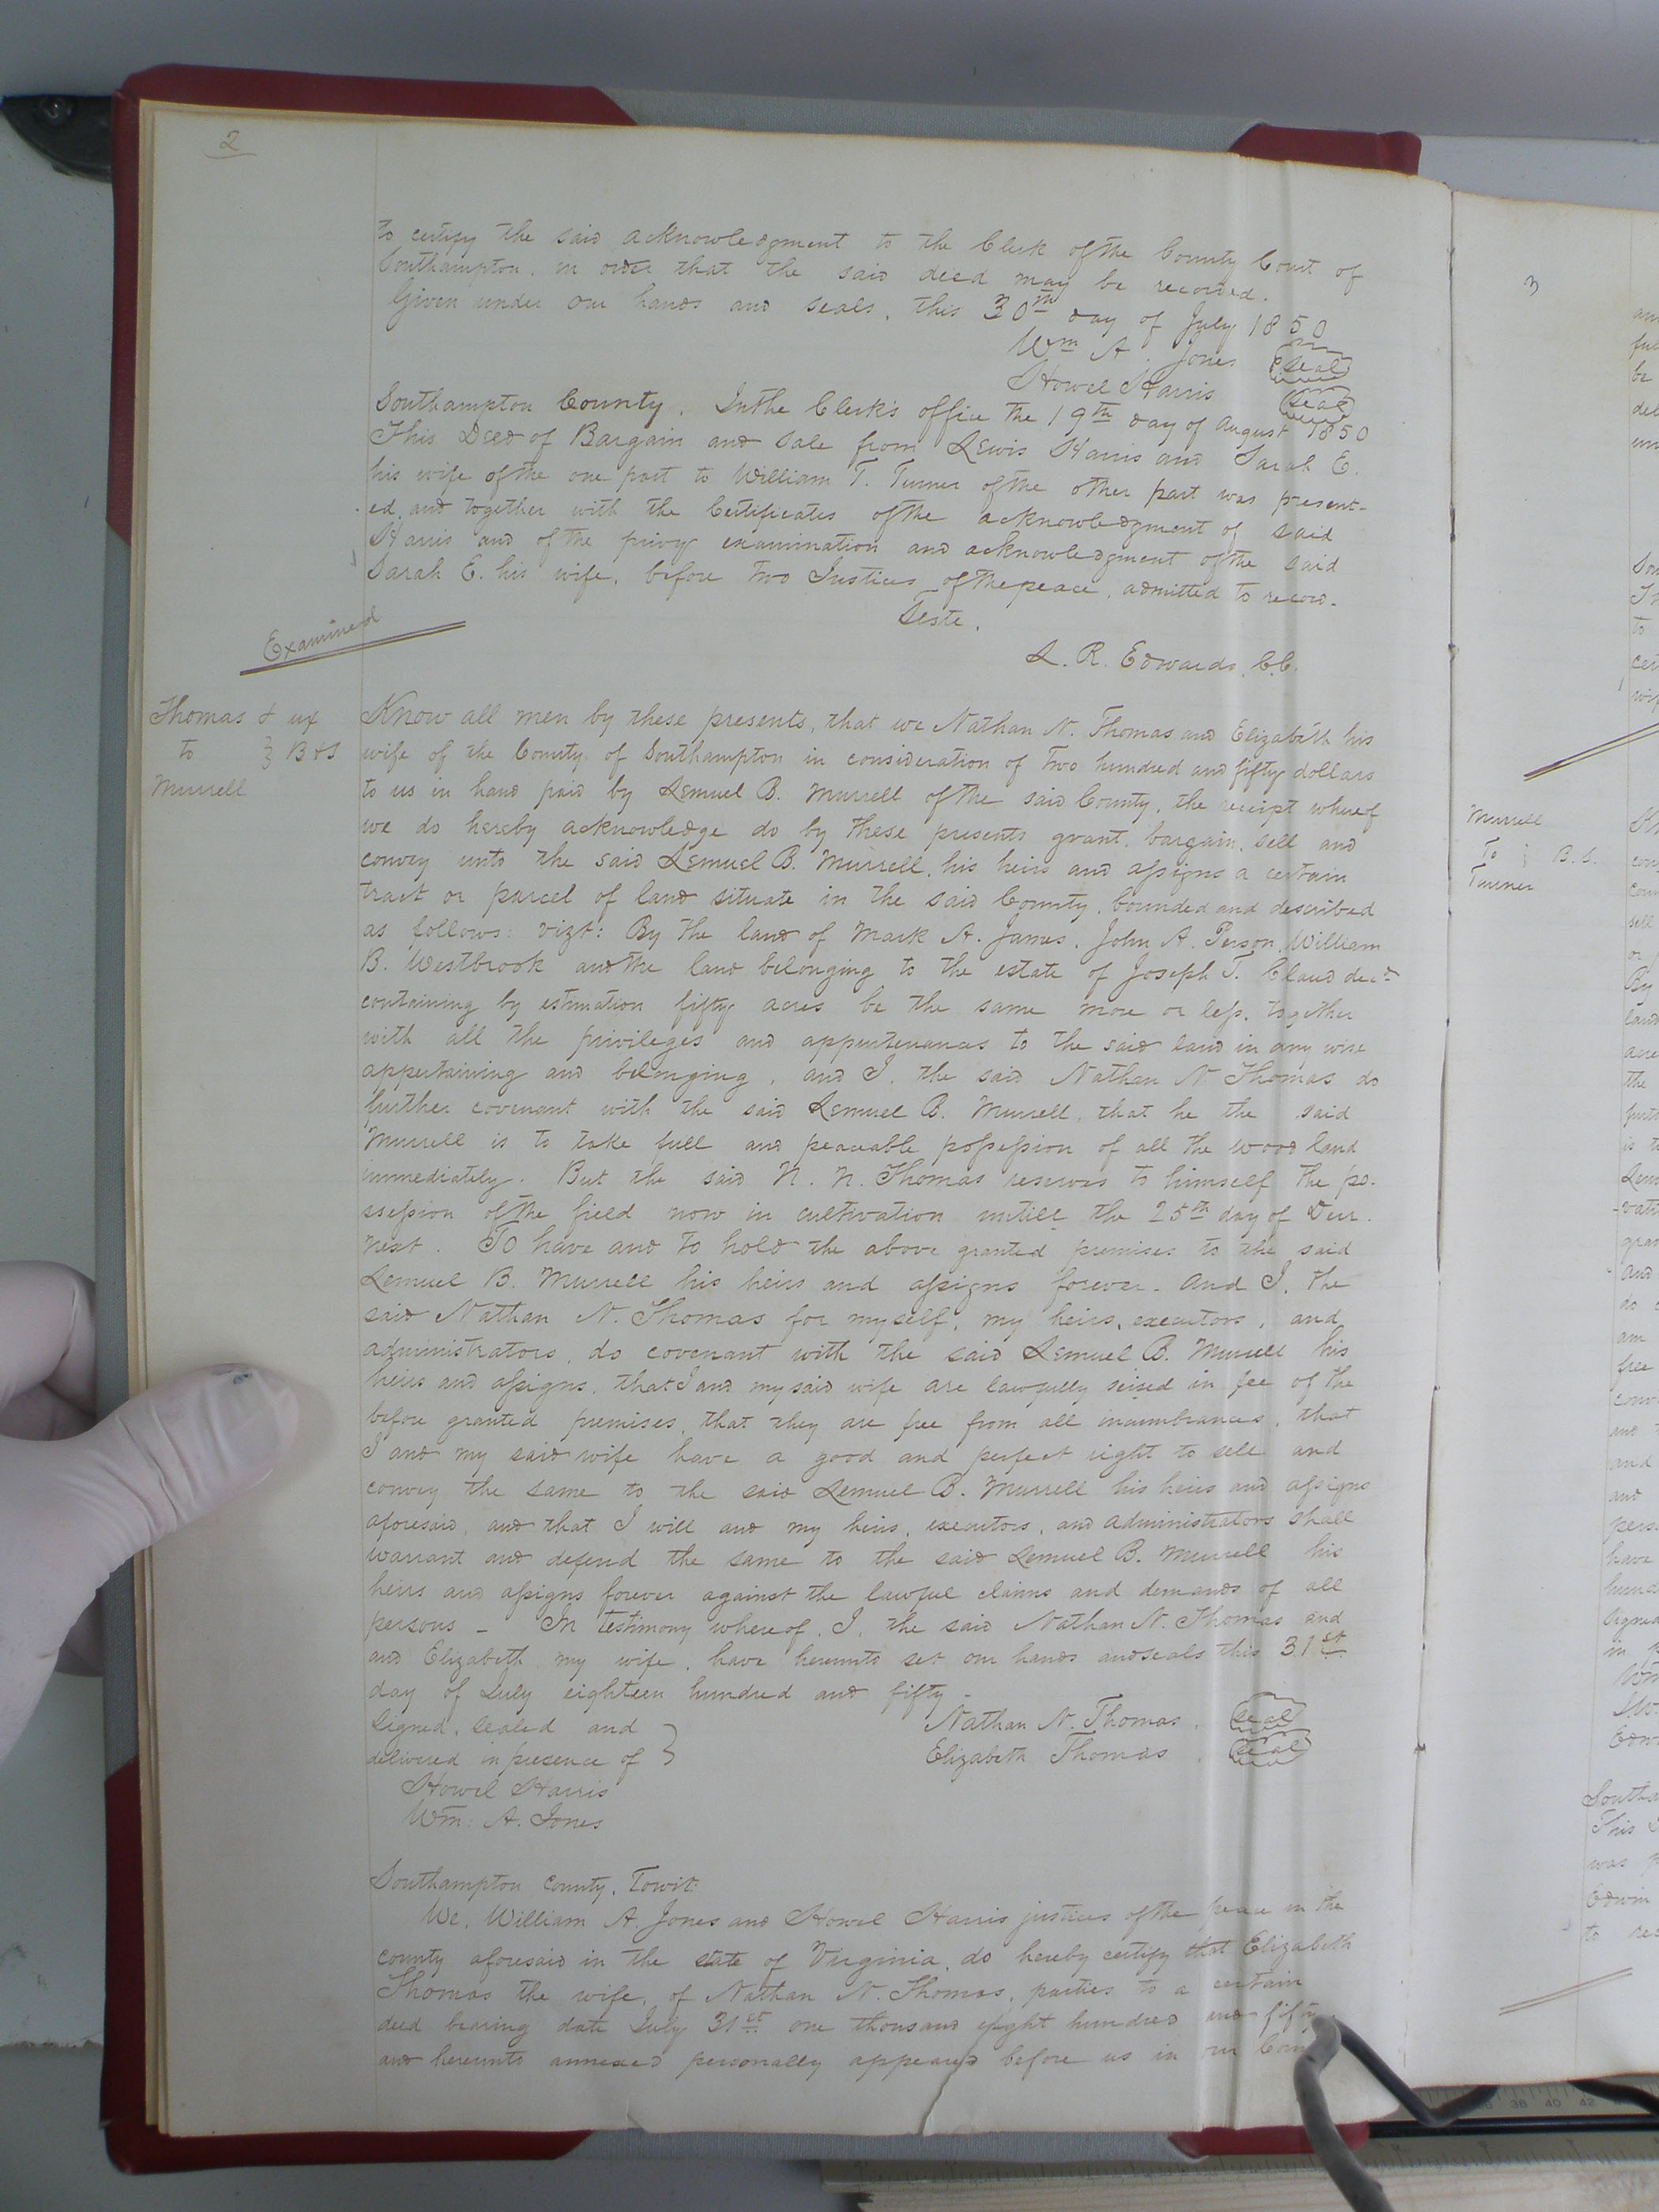 2
to certify the said acknowledgment to the Clerk of the County Court of
Southampton, in order that the said deed may be recorded.
Given under our hands and seals, this 30th day of July 1850
Wm A. Jones (seal)
Howel Harris (seal)
Southampton County. In the Clerk's office the 19th day of August 1850
This Deed of Bargain and sale from Lewis Harris and Sarah E.
his wife of the one part to William T. Turner of the other part was present-
ed, and together with the Certificates of the acknowledgment of said
Harris and of the privy examination and acknowledgment of the said
Sarah E. his wife, before two Justices of the peace, admitted to record.
Teste,
L. R. Edwards, C.C.
Examined
Thomas & ux
to } B & S
Murrell
Know all men by these presents, that we Nathan N. Thomas and Elizabeth his
wife of the County of Southampton in consideration of two hundred and fifty dollars
to us in hand paid by Lemuel B. Murrell of the said County, the receipt whereof
we do hereby acknowledge do by these presents grant, bargain, sell and
convey unto the said Lemuel B. Murrell, his heirs and assigns a certain
tract or parcel of land situate in the said County, bounded and described
as follows: vizt: By the land of Mark A. James, John A. Person, William
B. Westbrook and the land belonging to the estate of Joseph T. Claud decd
containing by estimation fifty acres be the same more or less, together
with all the privileges and appurtenances to the said land in any wise
appertaining and belonging, and I, the said Nathan N Thomas do
further covenant with the said Lemuel B. Murrell, that he the said
Murrell is to take full and peaceable possession of all the wood land
immediately. But the said N. N. Thomas reserves to himself the po-
ssession of the field now in cultivation untill the 25th day of Decr.
next. To have and to hold the above granted premises to the said
Lemuel B. Murrell his heirs and assigns forever. And I, the
said Nathan N. Thomas for myself, my heirs, executors, and
administrators, do covenant with the said Lemuel B. Murrell his
heirs and assigns, that I and my said wife are lawfully seised in fee of the
before granted premises, that they are free from all incumbrances, that
I and my said wife have a good and perfect right to sell and
convey the same to the said Lemuel B. Murrell his heirs and assigns
aforesaid, and that I will and my heirs, executors, and administrators shall
warrant and defend the same to the said Lemuel B. Murrell his
heirs and assigns forever against the lawful claims and demands of all
persons - In testimony whereof, I, the said Nathan N. Thomas and
and Elizabeth my wife, have hereunto set our hands and seals this 31st
day of July eighteen hundred and fifty -
Signed, sealed and } Nathan N. Thomas. (seal)
delivered in presence of } Elizabeth Thomas. (seal)
Howel Harris
Wm. A. Jones
Southampton County, Towit:
We, William A. Jones and Howel Harris justices of the peace in the
county aforesaid in the state of Virginia, do hereby certify that Elizabeth
Thomas the wife, of Nathan N. Thomas, parties to a certain
deed bearing date July 31st one thousand eight hundred and fifty
and hereunto annexed personally appeared before us in our
3
Murrell
To } B. S.
Turner